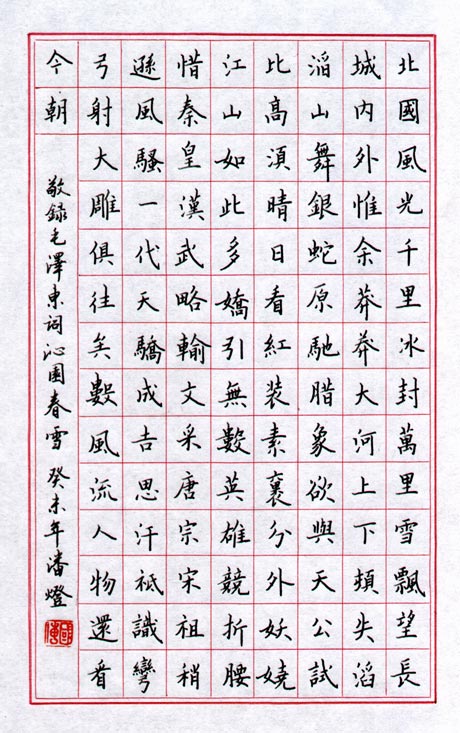 北國風光千里冰封萬里雪飄望長
城内外惟余莽莽大河上下頓失滔
滔山舞銀蛇原馳腊象欲與天公試
比髙湏晴日看紅装素裹分外妖嬈
江山如此多嬌引無數英雄競折腰
惜秦皇漢武略輸文采唐宗宋祖稍
遜風騷一代天驕成吉思汗祗識彎
弓射大雕俱往矣數風流人物還看
今朝
敬録毛澤東詞沁園春雪 癸未年潘燈